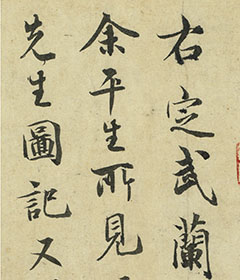 右定武蘭
余平生所見
先生圖記又